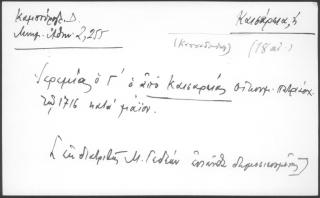 Καμπούρογλ. Δ.
Μνημ. Ἀθην. 2, 255
Καισάρεια, ἡ
(Καππαδοκίας) (18 αἰ.)
Ἱερεμίας ὁ Γ' ὁ ἀπὸ Καισαρείας οἰκουμ. πατριάρχ.
τῷ 1716 κατὰ μάϊον.
[ἐκ διατριβῆς Μ. Γεδεὼν δημοσιευμένης]